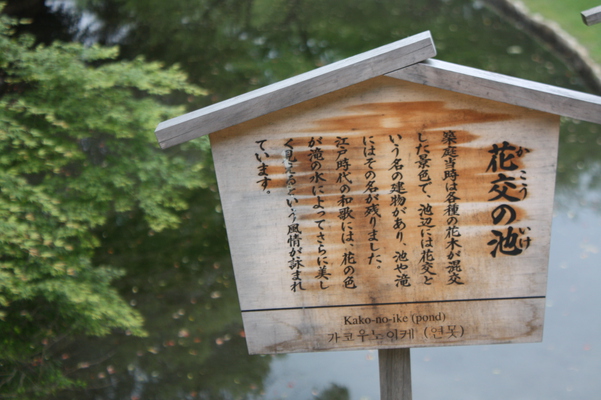 花交の池
かこういけ
築庭当時は各種の花木が混交
した景色で、池辺には花交と
いう名の建物があり、池や滝
にはその名が残りました。
江戸時代の和歌には、花の色
が滝の水によってさらに美し
く見えるという風情が詠まれ
ています。
Kako-no-ike (pond)
가코우노이케 (연못)